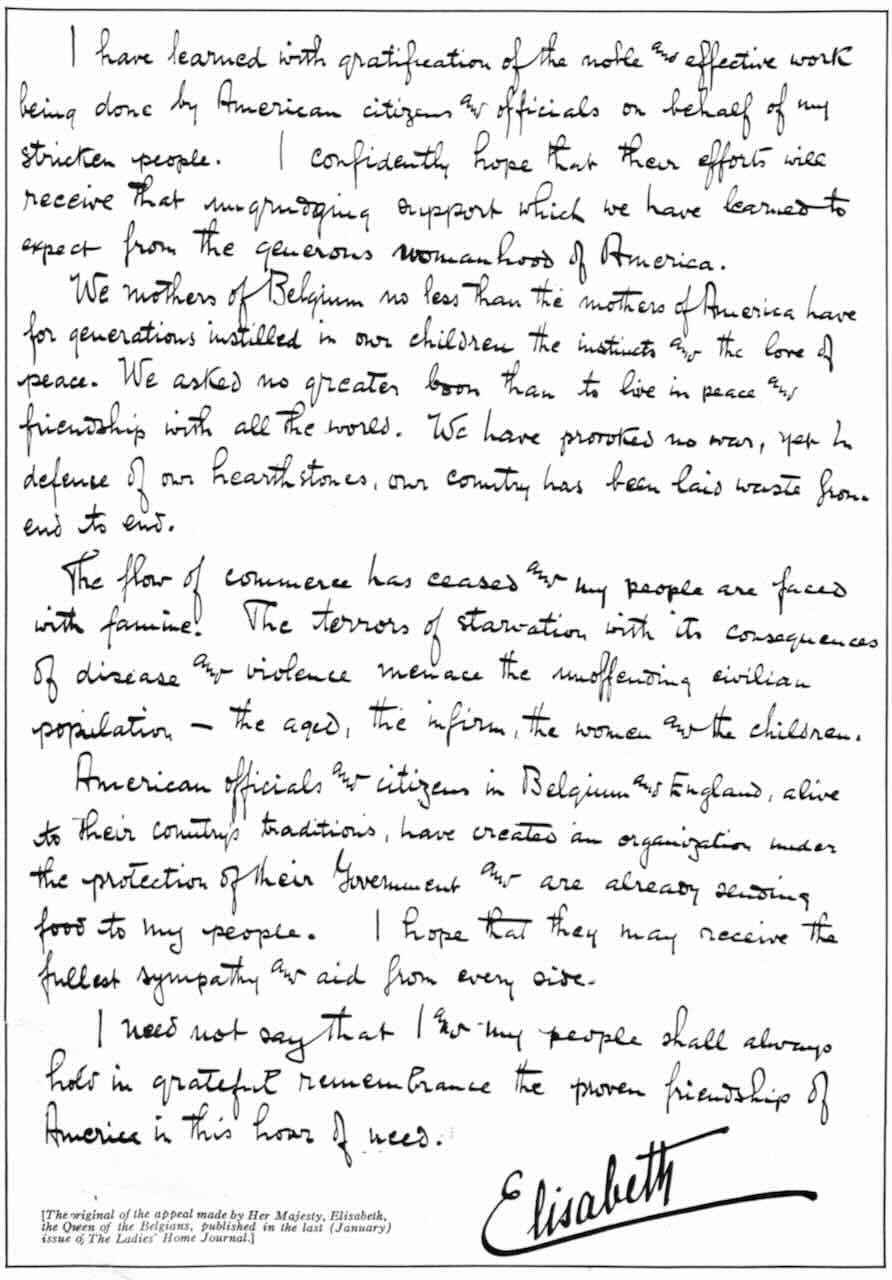 I have learned with gratification of the noble and effective work
being done by American citizens and officials on behalf of my
stricken people. I confidently hope that their efforts will
receive that ungrudging support which we have learned to
expect from the generous womanhood of America.
We mothers of Belgium no less than the mothers of America have
for generations instilled in our children the instincts and the love of
peace. We asked no greater boon than to live in peace and
friendship with all the world. We have provoked no war, yet in
defence of our hearthstones, our country has been laid waste from
end to end.
The flow of commerce has ceased and my people are faced
with famine. The terrors of starvation with its consequences
of disease and violence menace the unoffending civilian
population — the aged, the infirm, the women and the children.
American officials and citizens in Belgium and England, alive
to their country's traditions, have created an organization under
the protection of their Government and are already sending
food to my people. I hope that they may receive the
fullest sympathy and aid from every side.
I need not say that I and my people shall always
hold in grateful remembrance the proven friendship of
America in this hour of need.
Elisabeth
[The original of the appeal made by Her Majesty, Elisabeth,
the Queen of the Belgians, published in the last (January)
issue of The Ladies' Home Journal.]